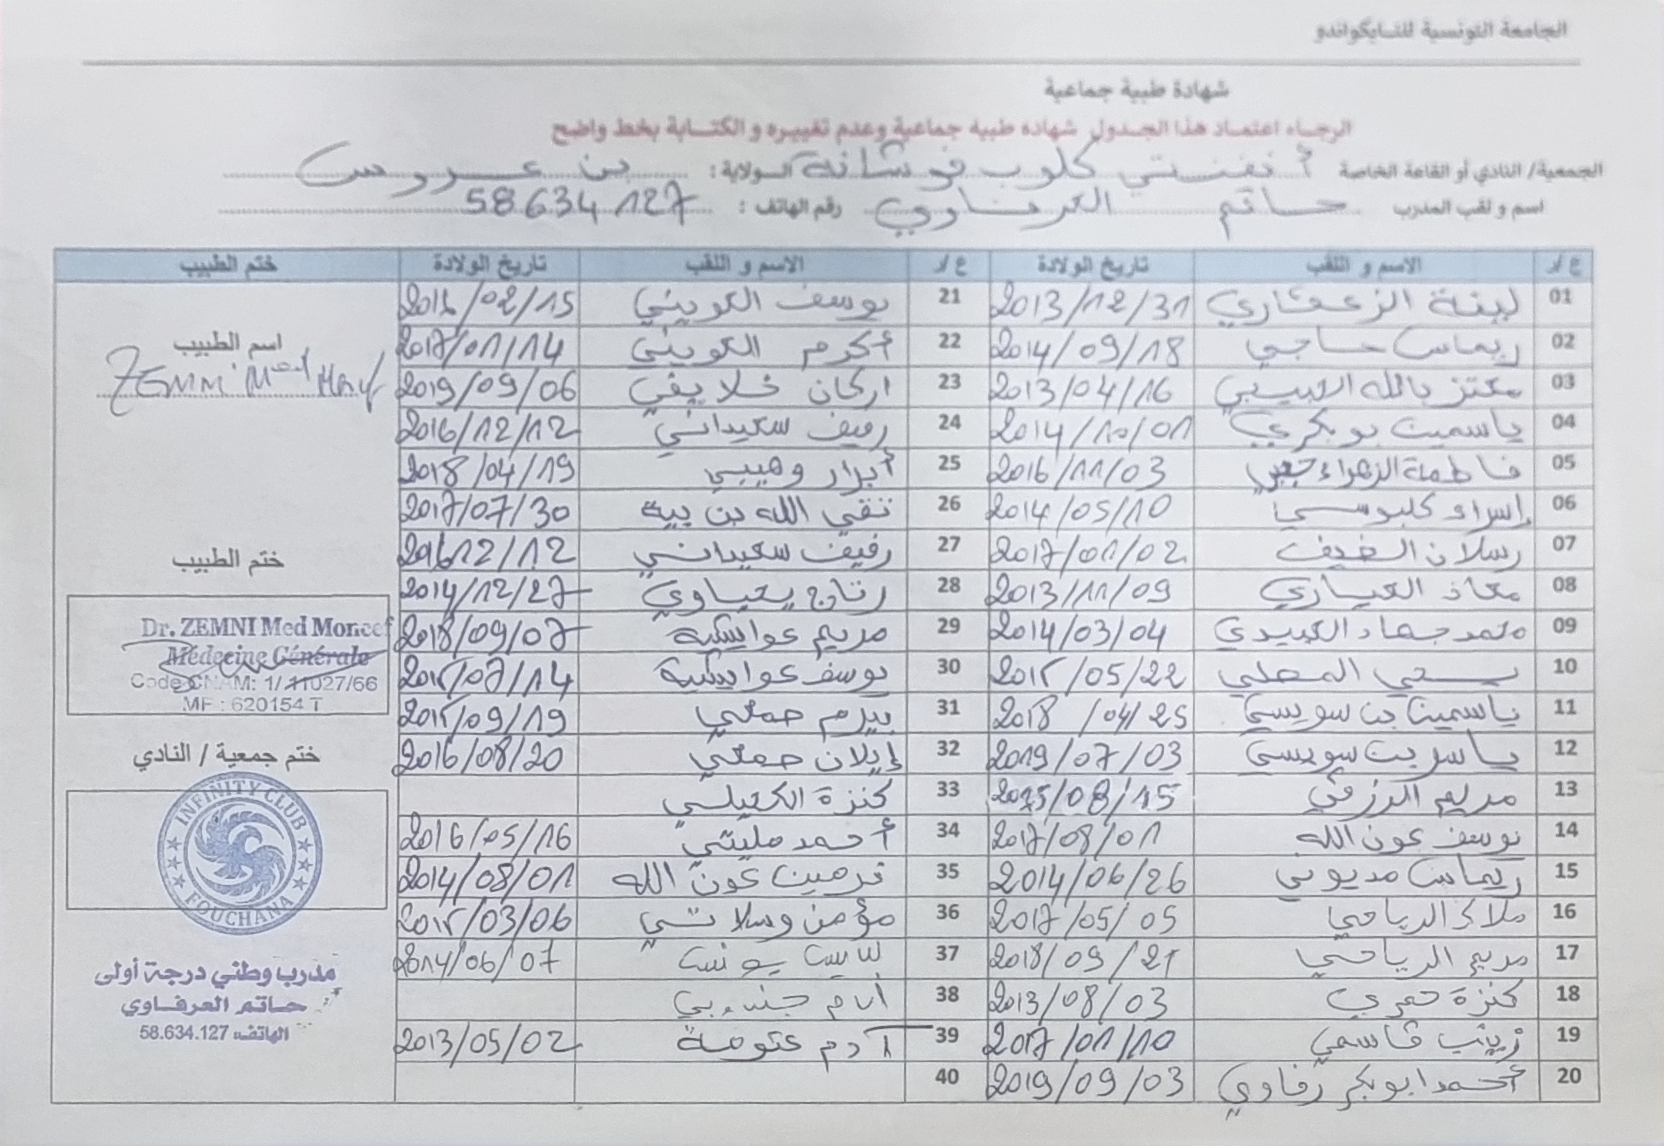 الجامعة التونسية للتايكواندو
شهادة طبية جماعية
الرجاء اعتماد هذا الجدول شهادة طبية جماعية وعدم تغييره و الكتابة بخط واضح
الجمعية/ النادي أو القاعة الخاصة أنفنتي كلوب فوشانة الولاية: بن عروس
اسم و لقب المدرب حاتم العرفاوي رقم الهاتف: 58634127
ع/ر الاسم و اللقب تاريخ الولادة ع/ر الاسم و اللقب تاريخ الولادة ختم الطبيب
01 لبنة الزعفاري 2013/12/31 21 يوسف الكويني 2016/02/15
02 ريماس حاجي 2014/09/18 22 أكرم الكويني 2017/01/14
03 معتز بالله 2013/04/16 23 اركان خلايفي 2019/09/06
04 ياسمين بوبكري 2014/10/01 24 رفيف سعيداني 2016/12/12
05 فاطمة الزهراء 2016/11/03 25 أبرار وهيبي 2018/04/19
06 إسراء كلبوسي 2014/05/10 26 تقي الله بن بية 2017/07/30
07 رسلان الضيف 2017/01/02 27 رفيف سعيداني 201612/12
08 معاذ العياري 2013/11/09 28 رتاج يحياوي 2014/12/27
09 محمد جهاد العبيدي 2014/03/04 29 مريم عوايشية 2018/09/07
10 يحي المحلي 2015/05/22 30 يوسف عوايشية 2015/07/14
11 ياسمين بن سويسي 2018/04/25 31 بيرم حمدي 2015/09/19
12 بن سويسي 2019/07/03 32 إيلان 2016/08/20
13 مريم الرزقي 2015/08/15 33 كنزة الكحيلي
14 يوسف عون الله 2017/08/01 34 أحمد مليتي 2016/05/16
15 ريماس مديوني 2014/06/26 35 نرمين عون الله 2014/08/01
16 ملاك الرياحي 2017/05/05 36 مؤمن وسلاتي 2015/03/06
17 مريم الرياحي 2018/09/21 37 يونس 2014/06/07
18 كنزة عمري 2013/08/03 38
19 زينب قاسمي 2017/01/10 39 آدم 2013/05/02
20 أحمد ابوبكر رفاوي 2019/09/03 40
اسم الطبيب
ZEMNI Med
ختم الطبيب
Dr. ZEMNI Med Moncef
Médecine Générale
Code CNAM: 1/ 11027/66
MF : 620154 T
ختم جمعية / النادي
INFINITY CLUB
FOUCHANA
مدرب وطني درجة أولى
حاتم العرفاوي
الهاتف: 58.634.127